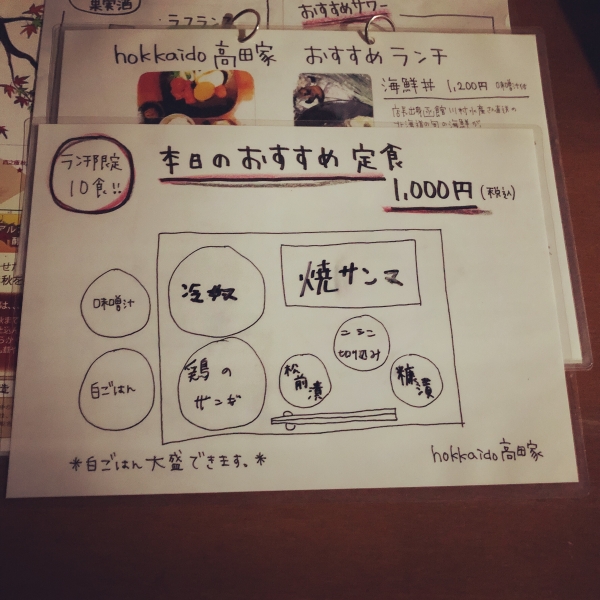 果実酒
ラフランス
おすすめサワー
hokkaido 高田家 おすすめランチ
海鮮丼 1,200円 味噌汁付
ランチ限定
10食!!
本日のおすすめ定食
1,000円(税込)
冷奴
焼サンマ
味噌汁
ニシン
切り込み
鶏の
ザンギ
松前漬
糠漬
白ごはん
*白ごはん大盛できます。*
hokkaido 高田家